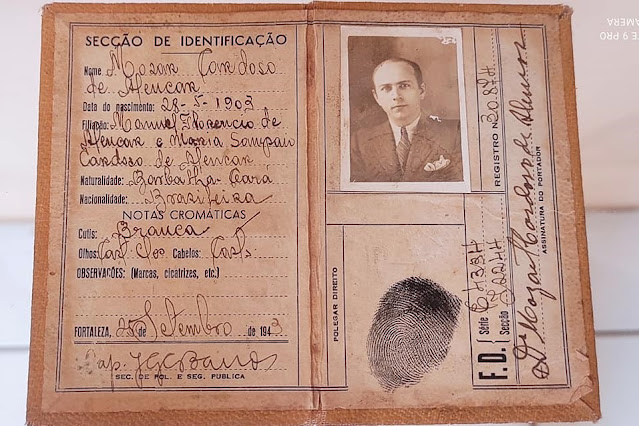 SECÇÃO DE IDENTIFICAÇÃO
Nome Mozar Cardoso
de Alencar
Data do nascimento: 28-5-1903
Filiação: Manuel Florencio de
Alencar e Maria Sampaio
Cardoso de Alencar
Naturalidade: Barbalha-Ceará
Nacionalidade: Brasileira
NOTAS CROMATICAS
Cutis: Branca
Olhos: Cast. Cabelos: Casts
OBSERVAÇÕES: (Marcas, cicatrizes, etc.)
FORTALEZA, 25 de Setembro de 1943
Cap.
SEC. DE POL. E SEG. PUBLICA
POLEGAR DIREITO
F.D. Série
Secção
REGISTRO N. 30.874
Dr Mozar Cardoso de Alencar
ASSINATURA DO PORTADOR
E 9 PRO
CAMERA